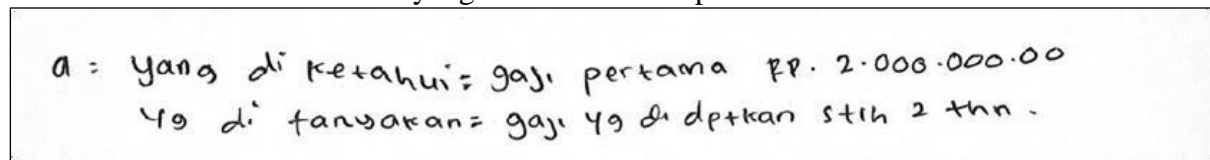 a : yang di ketahui = gaji pertama RP. 2.000.000.00
yg di tanyakan = gaji yg di dptkan stlh 2 thn .